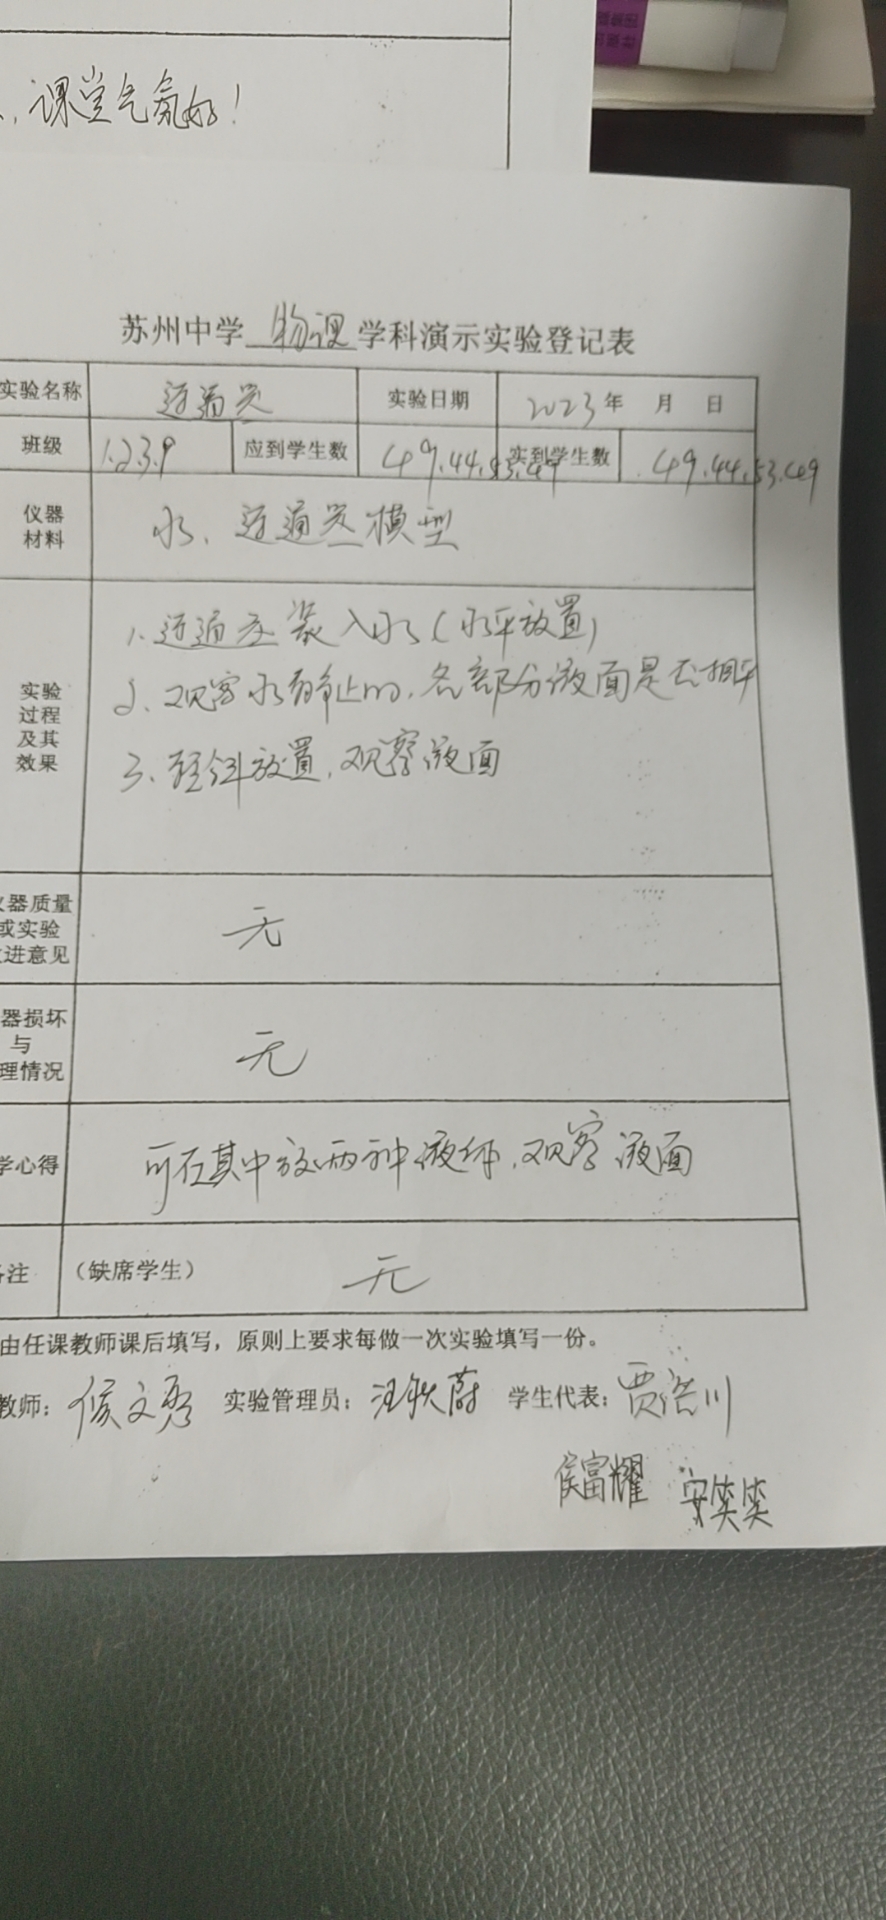 课堂气氛好！
苏州中学 物理 学科演示实验登记表
实验名称 连通器 实验日期 2023年 月 日
班级 1.2.3.9 应到学生数 49.44.53.49 实到学生数 49.44.53.49
仪器
材料
水、连通器模型
实验
过程
及其
效果
1、连通器装入水（水平放置）
2、观察水静止时，各部分液面是否相平
3、倾斜放置，观察液面
器质量
或实验
进意见
无
器损坏
与
理情况
无
学心得
可在其中放两种液体，观察液面
注 （缺席学生） 无
由任课教师课后填写，原则上要求每做一次实验填写一份。
教师：侯文秀 实验管理员：汪秋蔚 学生代表：贾浩川
侯富耀 安笑笑